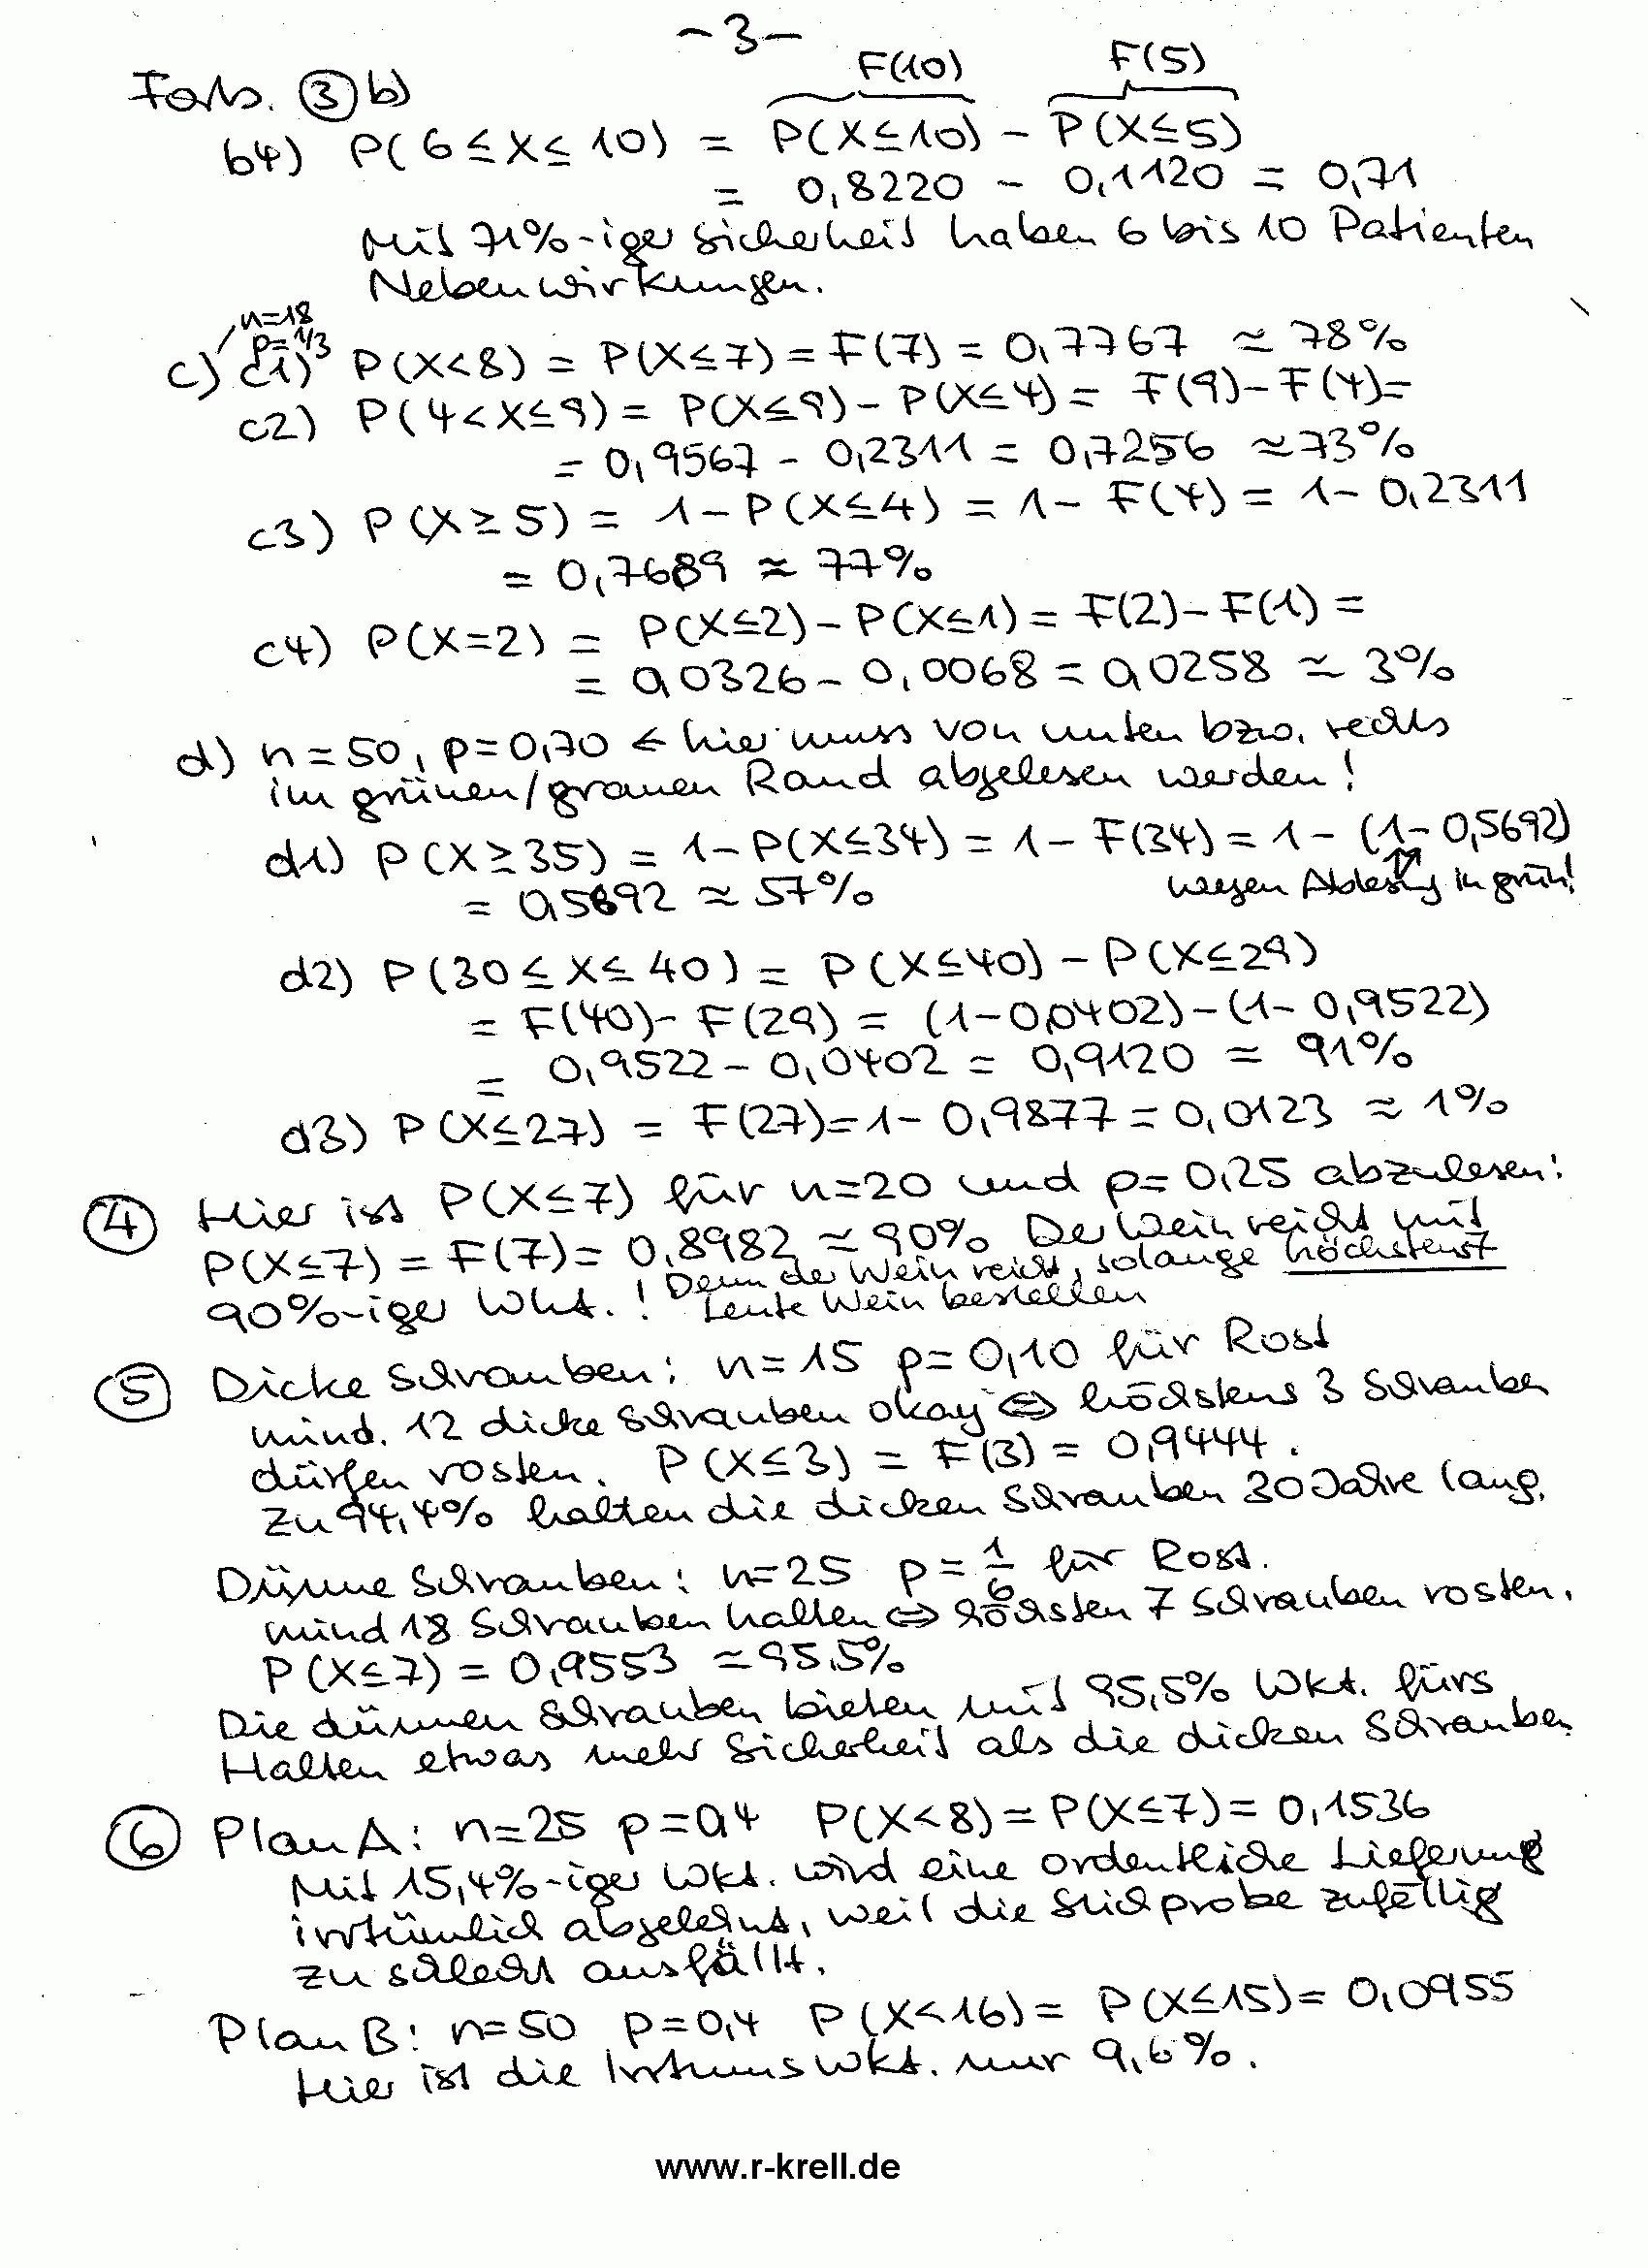 -3-
F(10) F(5)
Forts. ③ b)
b4) P(6≤X≤10) = P(X≤10) - P(X≤5)
= 0,8220 - 0,1120 = 0,71
Mit 71%-iger Sicherheit haben 6 bis 10 Patienten
Nebenwirkungen.
n=18
p=1/3
c) c1) P(X<8) = P(X≤7) = F(7) = 0,7767 ≈ 78%
c2) P(4<X≤9) = P(X≤9) - P(X≤4) = F(9) - F(4) =
= 0,9567 - 0,2311 = 0,7256 ≈ 73%
c3) P(X≥5) = 1 - P(X≤4) = 1 - F(4) = 1 - 0,2311
= 0,7689 ≈ 77%
c4) P(X=2) = P(X≤2) - P(X≤1) = F(2) - F(1) =
= 0,0326 - 0,0068 = 0,0258 ≈ 3%
d) n=50, p=0,70 ← hier muss von unten bzw. rechts
im grünen/grauen Rand abgelesen werden!
d1) P(X≥35) = 1 - P(X≤34) = 1 - F(34) = 1 - (1 - 0,5692)
= 0,5692 ≈ 57% wegen Ablesung in grün!
d2) P(30≤X≤40) = P(X≤40) - P(X≤29)
= F(40) - F(29) = (1-0,0402) - (1-0,9522)
= 0,9522 - 0,0402 = 0,9120 = 91%
d3) P(X≤27) = F(27) = 1 - 0,9877 = 0,0123 ≈ 1%
④ Hier ist P(X≤7) für n=20 und p=0,25 abzulesen:
P(X≤7) = F(7) = 0,8982 ≈ 90% Der Wein reicht mit
90%-iger Wkt.! Denn der Wein reicht, solange höchstens 7
Leute Wein bestellen
⑤ Dicke Schrauben: n=15 p=0,10 für Rost
mind. 12 dicke Schrauben okay ⇔ höchstens 3 Schrauben
dürfen rosten. P(X≤3) = F(3) = 0,9444.
Zu 94,4% halten die dicken Schrauben 30 Jahre lang.
Dünne Schrauben: n=25 p=1/6 für Rost.
mind 18 Schrauben halten ⇔ höchsten 7 Schrauben rosten.
P(X≤7) = 0,9553 ≈ 95,5%
Die dünnen Schrauben bieten mit 95,5% Wkt. fürs
Halten etwas mehr Sicherheit als die dicken Schrauben.
⑥ Plan A: n=25 p=0,4 P(X<8) = P(X≤7) = 0,1536
Mit 15,4%-iger Wkt. wird eine ordentliche Lieferung
irrtümlich abgelehnt, weil die Stichprobe zufällig
zu schlecht ausfällt.
Plan B: n=50 p=0,4 P(X<16) = P(X≤15) = 0,0955
Hier ist die Irrtumswkt. nur 9,6%.
www.r-krell.de